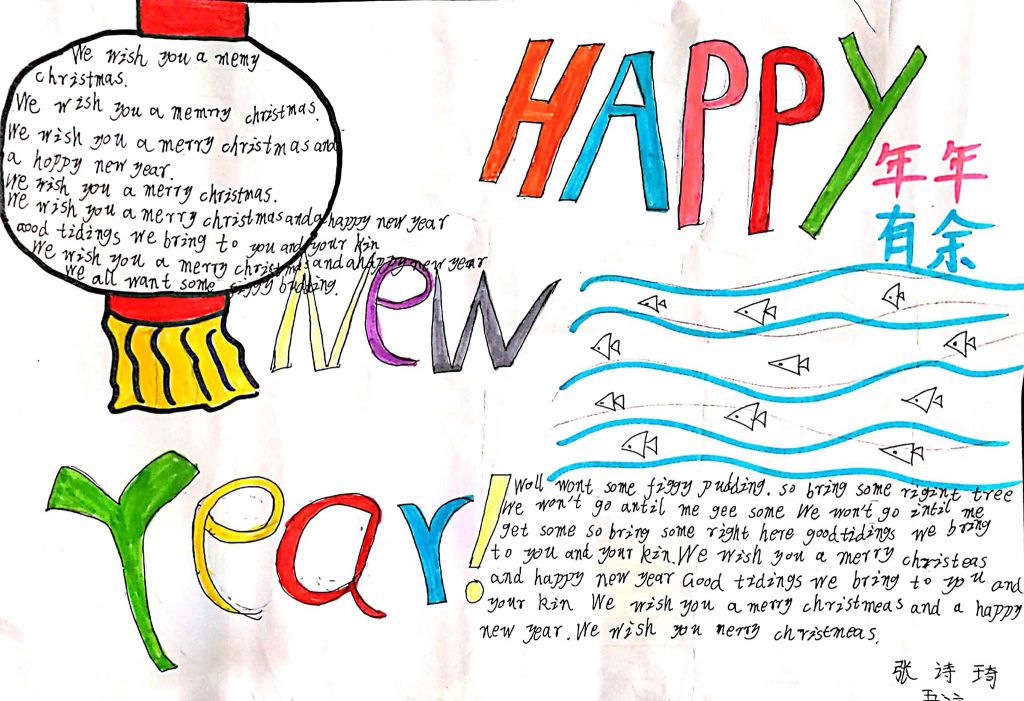 We wish you a memy
christmas.
We wish you a memrry christmas.
We wish you a merry christmas and
a happy new year.
We wish you a merry christmas.
We wish you a merry christmas and a happy new year
Good tidings we bring to you and your kin
We wish you a merry christmas and a happy new year
We all want some figgy budding.
HAPPY
年年
有余
New
Year!
Wall wont some figgy pudding. so bring some rigint tree
We won't go antil me gee some We won't go intil me
get some so bring some right here goodtidings we bring
to you and your kin. We wish you a merry christeas
and happy new year Good tidings we bring to you and
your kin We wish you a merry christmeas and a happy
new year. We wish you merry christmeas.
张诗琦